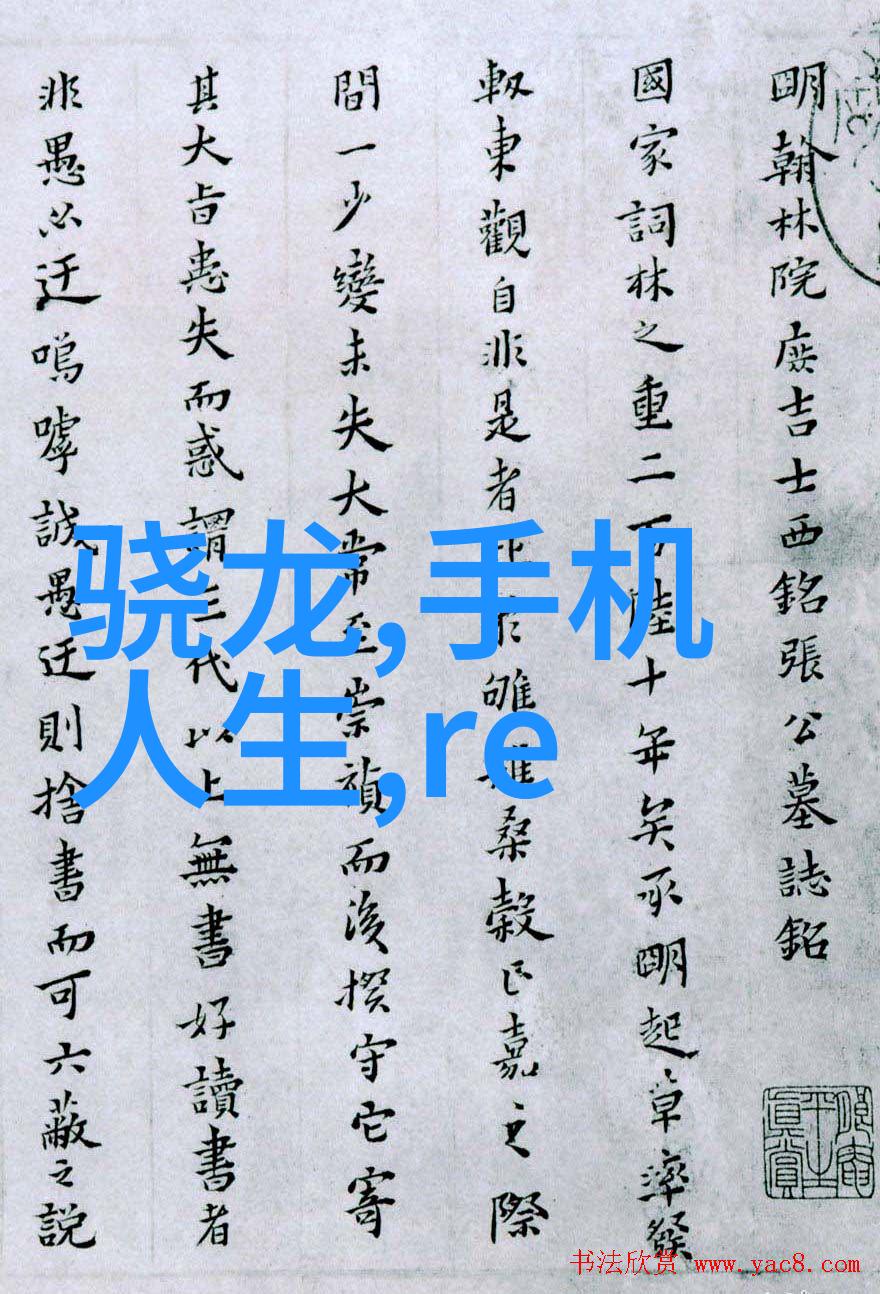 明翰林院庶吉士西銘張公墓誌銘
國家詞林之重二百陸十年矣承明起草率發
軔東觀自非是者
雖桑穀
嘉之際
間一少變未失大常至崇禎而後揆守它寄
其大旨患失而惑謂三代以上無書好讀書者
非愚必迂嗚嘑誠愚迂則捨書而可六蔽之説
骁龙,手机
人生,re
書法欣赏 www.yac8.com